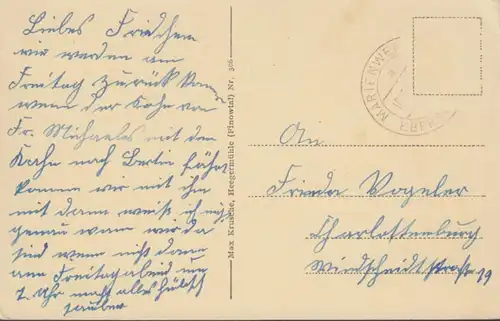 Liebes Friedchen
wir werden am
Freitag zurück kom
wenn der Kahn von
Fr. Michaeles mit den
Krahn nach Berlin fährt
komme wir mit ihn
mit dann weiß ich nich
genau wann wir da
sind wenn nicht dann
am Freitagabend um
7 Uhr mach alles hübsch
sauber
Max Krusche, Heegermühle (Finowtal) Nr. 306
MARIENWE
EBER
An
Frieda Vogeler
Charlottenburg
Windscheidtstraße 19